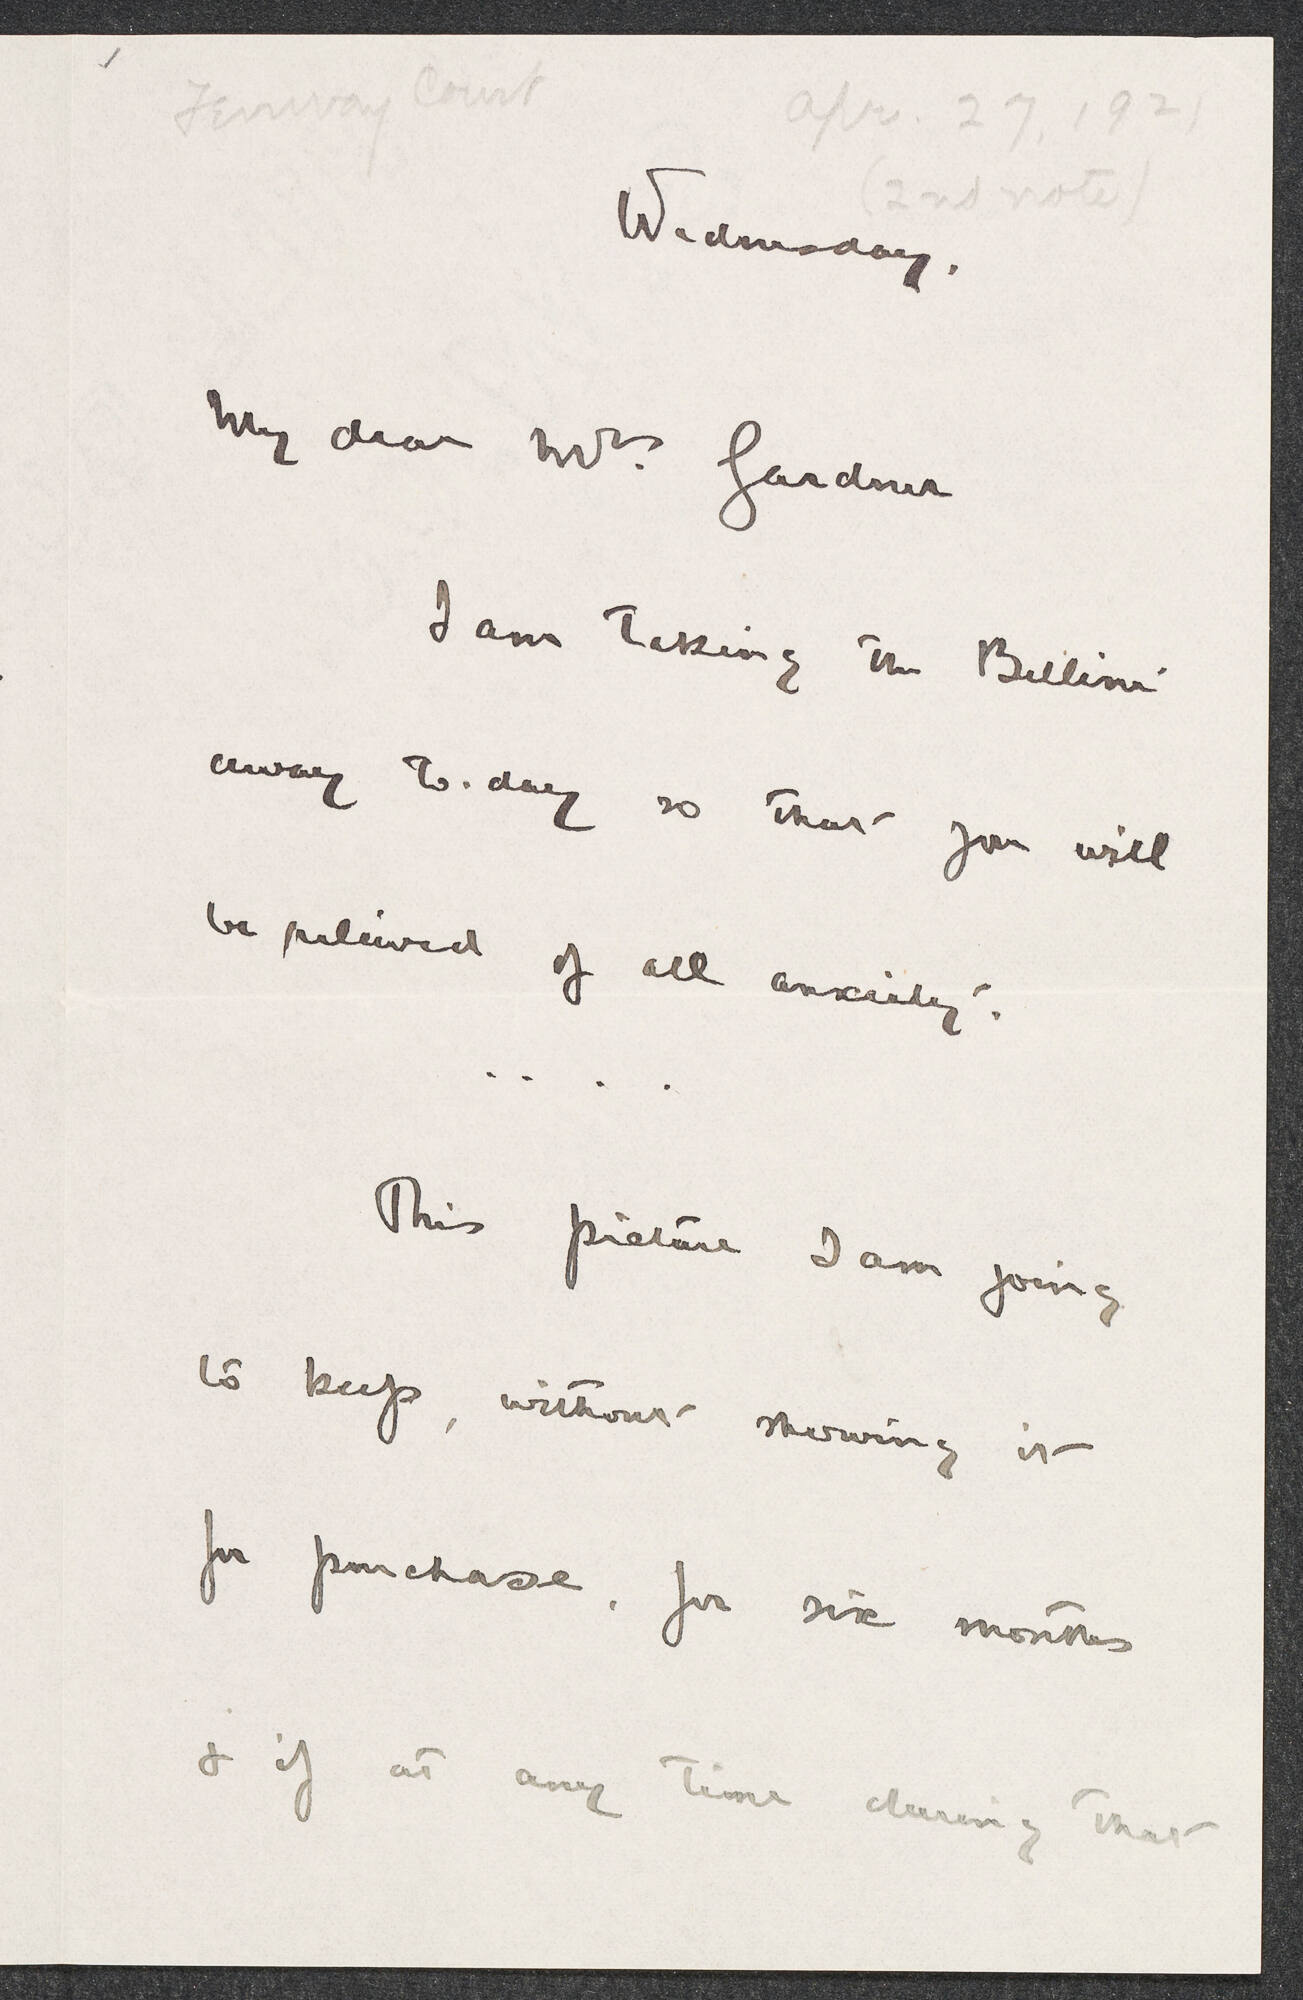 Fenway Court
Apr. 27, 1921
(2nd note)
Wednesday.
My dear Mrs. Gardner
I am taking the Bellini
away to-day so that you will
be relieved of all anxiety.
.. . .
This picture I am going
to keep, without showing it
for purchase, for six months
& if at any time during that